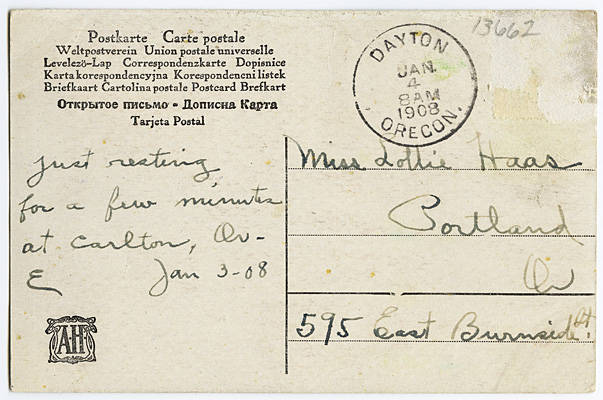 13662
Postkarte Carte postale
Weltpostverein Union postale universelle
Levelezö-Lap Correspondenzkarte Dopisnice
Karta korespondencyjna Korespondencni listek
Briefkaart Cartolina postale Postcard Brefkart
Открытое письмо - Дописна Карта
Tarjeta Postal
DAYTON
JAN.
4
8 AM
1908
OREGON.
Just resting
for a few minutes
at Carlton, Or-
E Jan 3-08
Miss Lottie Haas
Portland
Or
595 East Burnside St.
AH